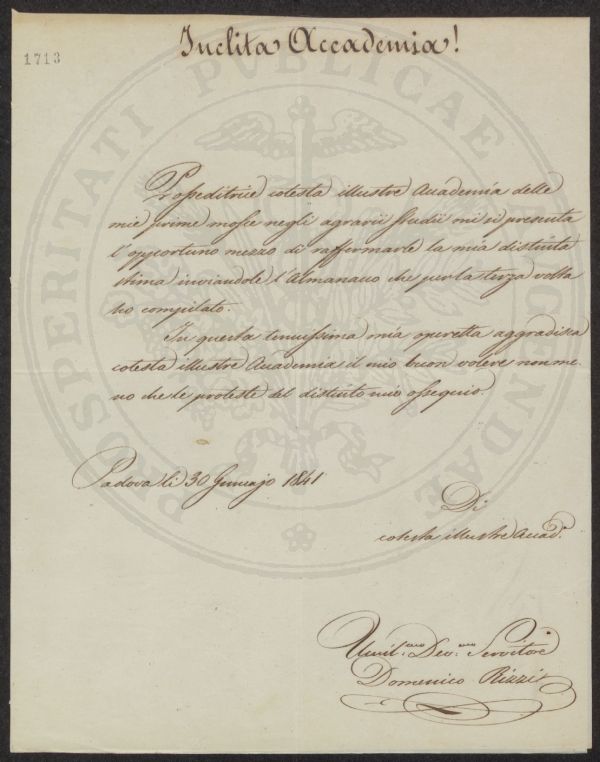 Inclita Accademia!
1713
PROSPERITATI PVBLICAE AVGENDAE
Proteditrice cotesta illustre Accademia delle
mie prime mosse negli agrarii studii mi si presenta
l'opportuno mezzo di raffermarle la mia distinta
stima inviandole l'Almanacco che per la terza volta
ho compilato.
In questa tenuissima mia operetta aggradisca
cotesta illustre Accademia il mio buon volere non me-
no che le proteste del distinto mio ossequio.
Padova li 30 Gennajo 1841
Di
cotesta illustre Accad.a
Umil.mo Dev.mo Servitore
Domenico Rizzi